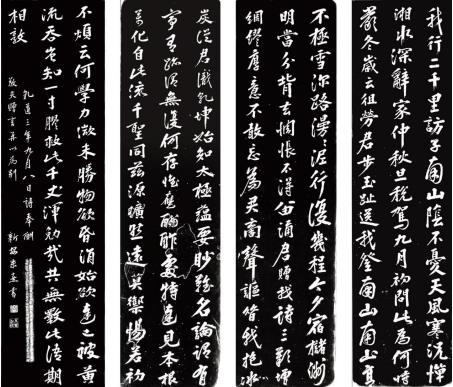 我行二千里訪子南山陰不憂天風寒況憚
湘水深辭家仲秋旦稅駕九月初問此為何時
嚴冬歲云徂勞君步玉趾送我登南山南山高
不極雪深路漫漫泥行復幾程今夕宿櫧洲
明當分背去惆悵不得留誦君贈我詩三歎增
綢繆厚意不敢忘為君商聲謳昔我抱冰
炭從君識乾坤始知太極蘊要眇難名論謂有
寧有跡謂無復何存惟應酬酢處特達見本根
萬化自此流千聖同茲源曠然遠莫禦惕若初
不煩云何學力微未勝物欲昏涓涓始欲達已被黃
流吞豈知一寸膠救此千丈渾勉哉共無斁此語期
相敦
乾道三年九月八日詩奉酬
敬夫贈言并以為別
新安朱熹書